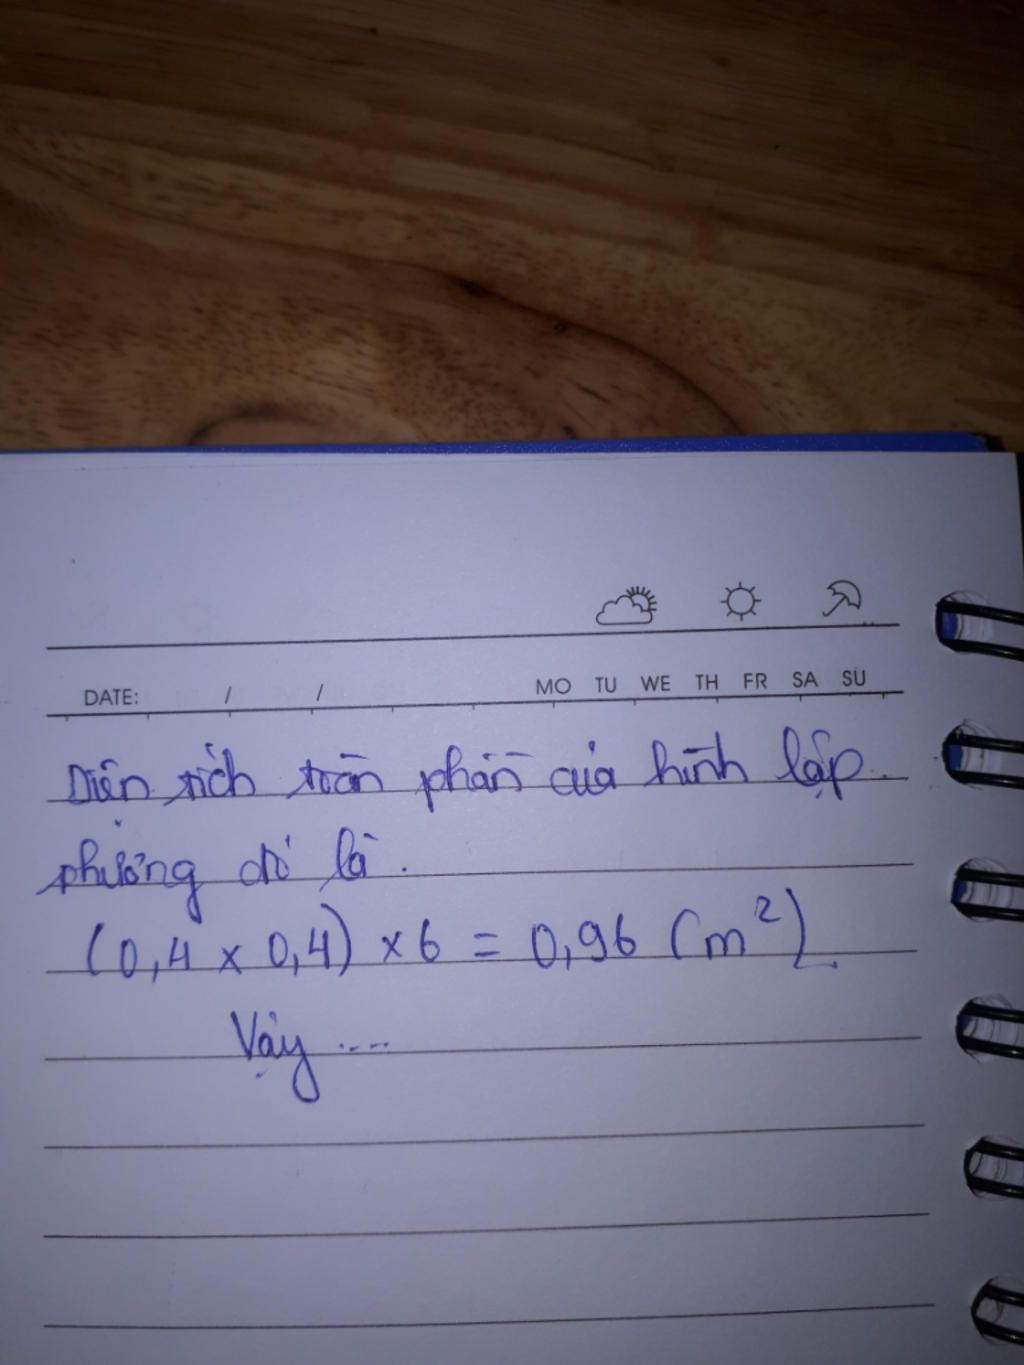 DATE: / /
MO TU WE TH FR SA SU
Diện tích toàn phần của hình lập
phương đó là.
(0,4 x 0,4) x 6 = 0,96 (m²)
Vậy ....